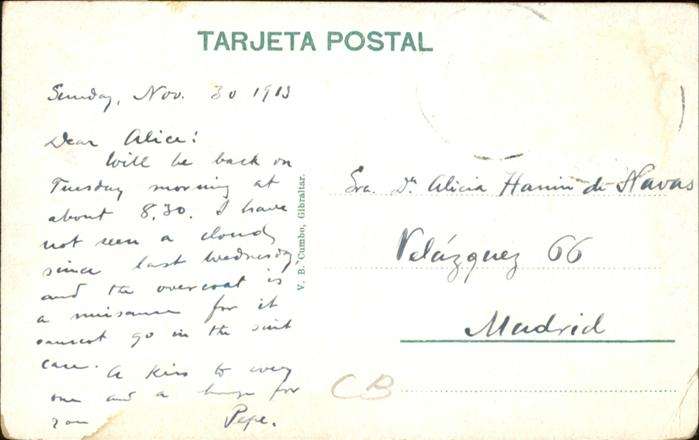 TARJETA POSTAL
Sunday, Nov. 30 1913
Dear Alice:
Will be back on
Tuesday morning at
about 8.30. I have
not seen a cloud
since last wednesday
and the overcoat is
a nuisance for it
cannot go in the suit
case. A kiss to every
one and a huge for
you Pepe.
V. B. Cumbo, Gibraltar.
Sra. Dª Alicia de Navas
Velázquez 66
Madrid
CB